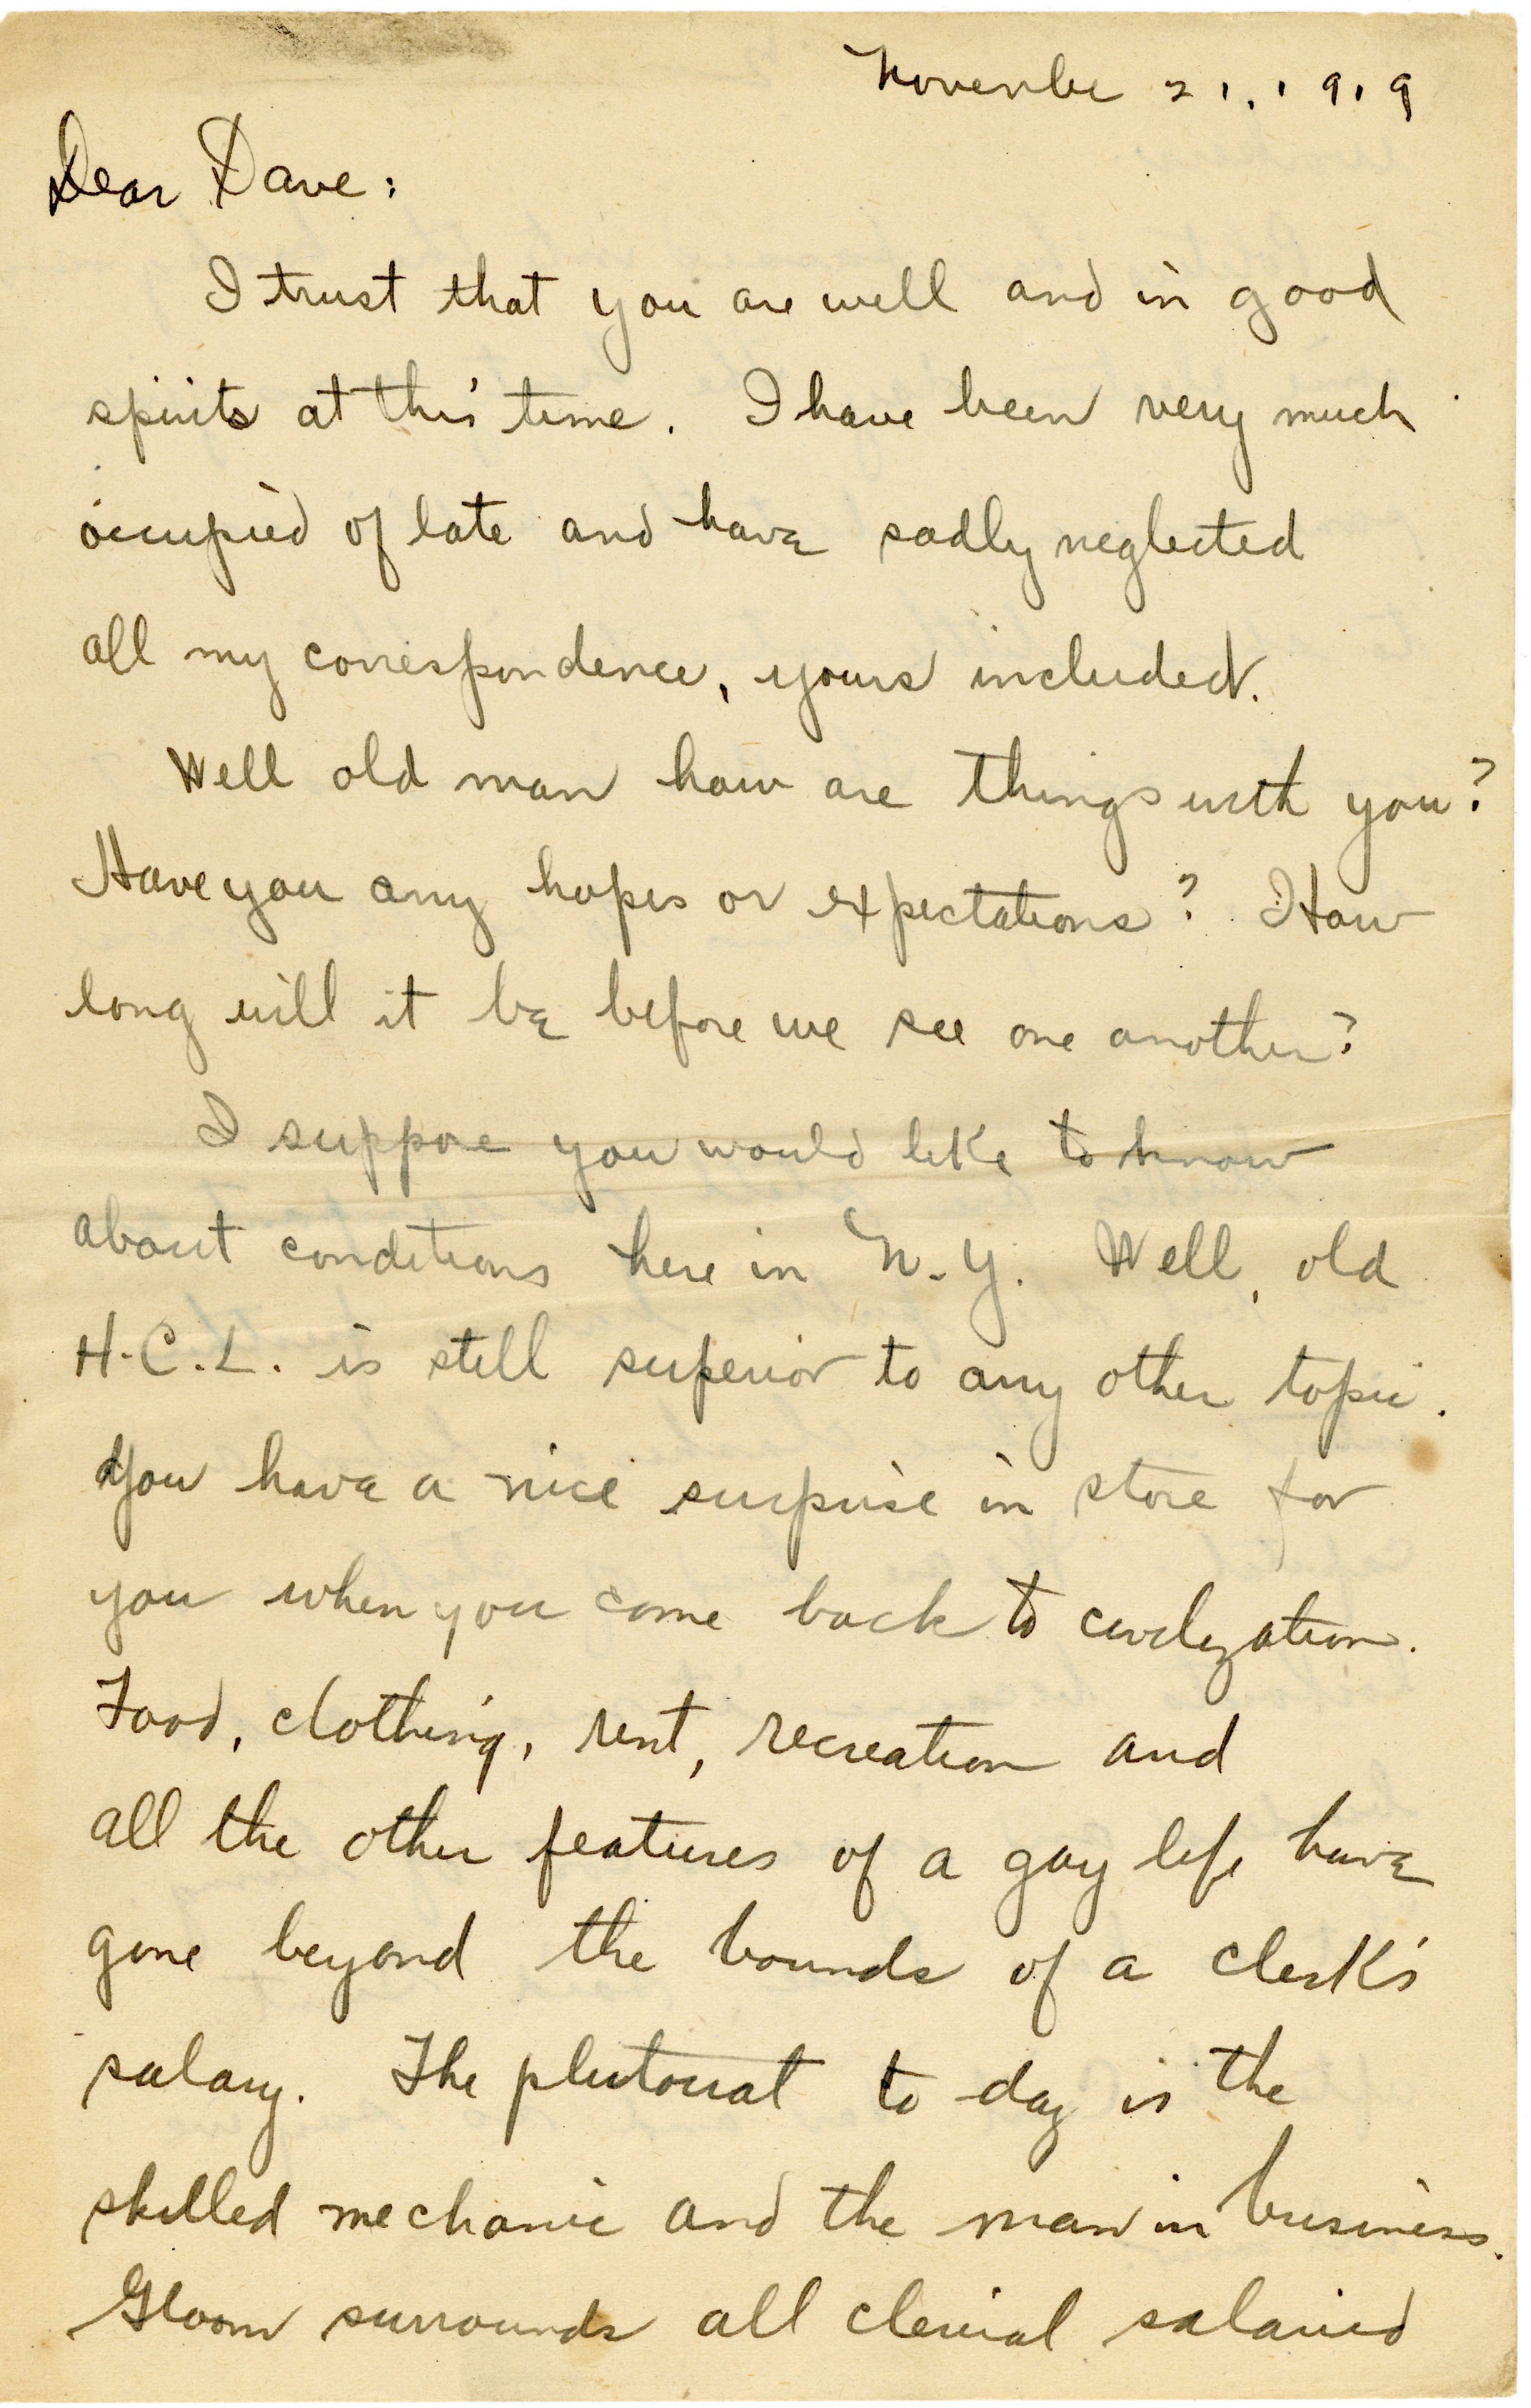 November 21, 1919
Dear Dave:
I trust that you are well and in good
spirits at this time. I have been very much
occupied of late and have sadly neglected
all my correspondence, yours included.
Well old man how are things with you?
Have you any hopes or expectations? How
long will it be before we see one another?
I suppose you would like to know
about conditions here in N.Y. Well, old
H.C.L. is still superior to any other topic.
You have a nice surprise in store for
you when you come back to civilization.
Food, clothing, rent, recreation and
all the other features of a gay life have
gone beyond the bounds of a clerk's
salary. The plutocrat to day is the
skilled mechanic and the man in business.
Gloom surrounds all clerical salaried